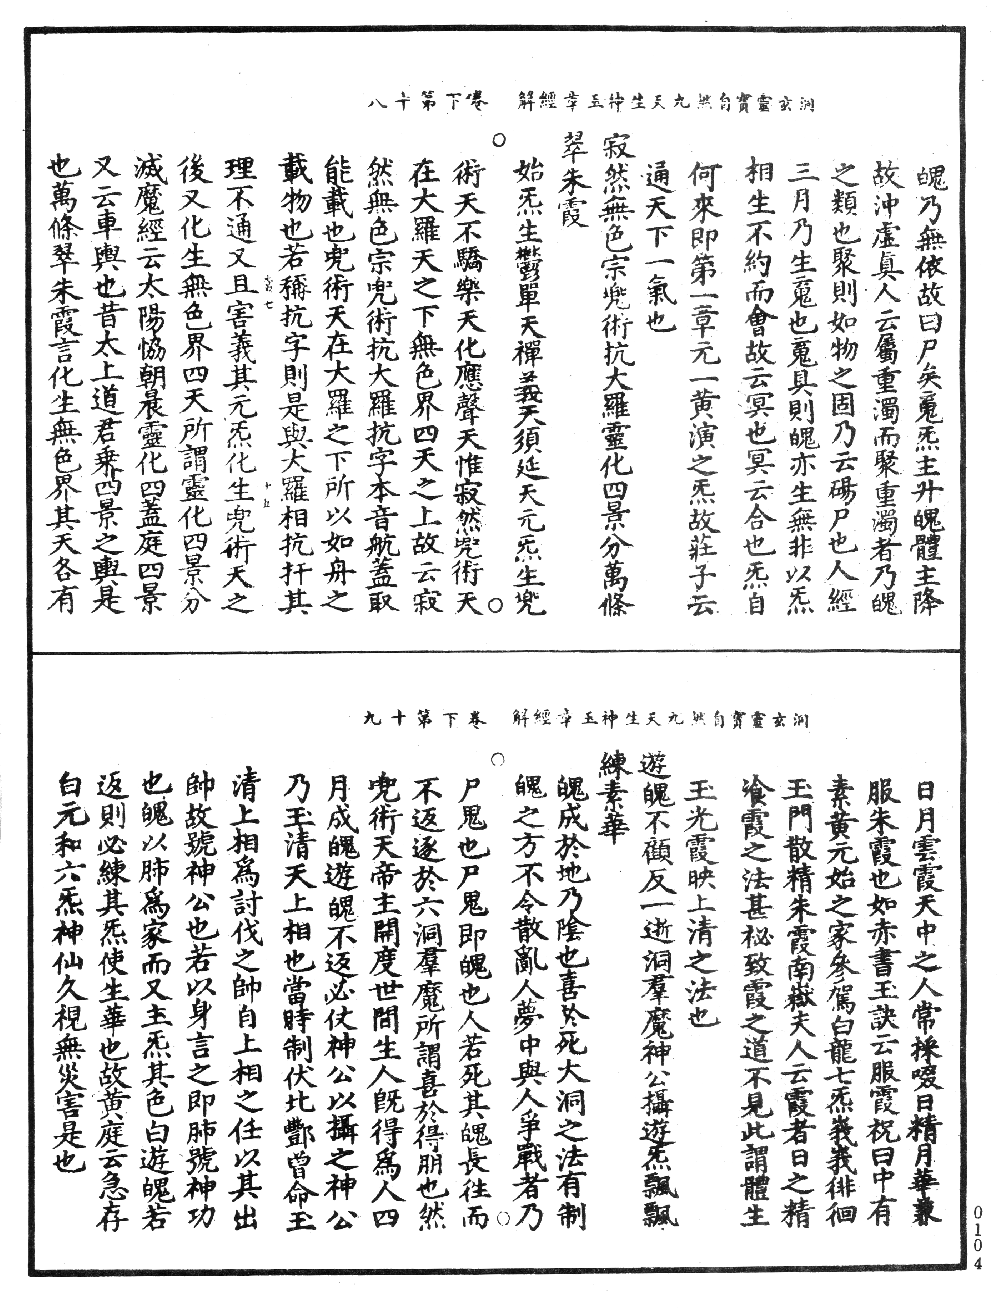 洞玄靈寶自然九天生神玉章經解　卷下第十八
魄乃無依故曰尸矣䰟炁主升魄體主降
故沖虛真人云屬重濁而聚重濁者乃魄
之類也聚則如物之固乃云碭尸也人經
三月乃生䰟也䰟具則魄亦生無非以炁
相生不約而會故云冥也冥云合也炁自
何來即第一章元一黄演之炁故莊子云
通天下一氣也
寂然無色宗兠術抗大羅靈化四景分萬條
翠朱霞
始炁生鬱單天禪善天須延天元炁生兠
術天不驕樂天化應聲天惟寂然兜術天
在大羅天之下無色界四天之上故云寂
然無色宗兜術抗大羅抗字本音航蓋取
能載也兜術天在大羅之下所以如舟之
載物也若稱抗字則是與大羅相抗扞其
理不通又且害義其元炁化生兜術天之
後又化生無色界四天所謂靈化四景分
滅魔經云太陽恊朝晨靈化四蓋庭四景
又云車輿也昔太上道君乗四景之輿是
也萬條翠朱霞言化生無色界其天各有
洞玄靈寶自然九天生神玉章經解　卷下第十九
日月雲霞天中之人常採啜日精月華兼
服朱霞也如赤書玉訣云服霞祝曰中有
素黄元始之家參駕白龍七炁羲羲徘徊
玉門散精朱霞南嶽夫人云霞者日之精
飡霞之法甚祕致霞之道不見此謂體生
玉光霞映上清之法也
遊魄不顧反一逝洞羣魔神公攝遊炁飄飄
練素華
魄成於地乃陰也喜於死大洞之法有制
魄之方不令散亂人夢中與人爭戰者乃
尸鬼也尸鬼即魄也人若死其魄長往而
不返逐於六洞羣魔所謂喜於得朋也然
兜術天帝主開度世間生人旣得爲人四
月成魄遊魄不返必仗神公以攝之神公
乃玉清天上相也當時制伏北酆曾命玉
清上相爲討伐之帥自上相之任以其出
帥故號神公也若以身言之即肺號神功
也魄以肺爲家而又主炁其色白遊魄若
返則必練其炁使生華也故黄庭云急存
白元和六炁神仙久視無災害是也
0104